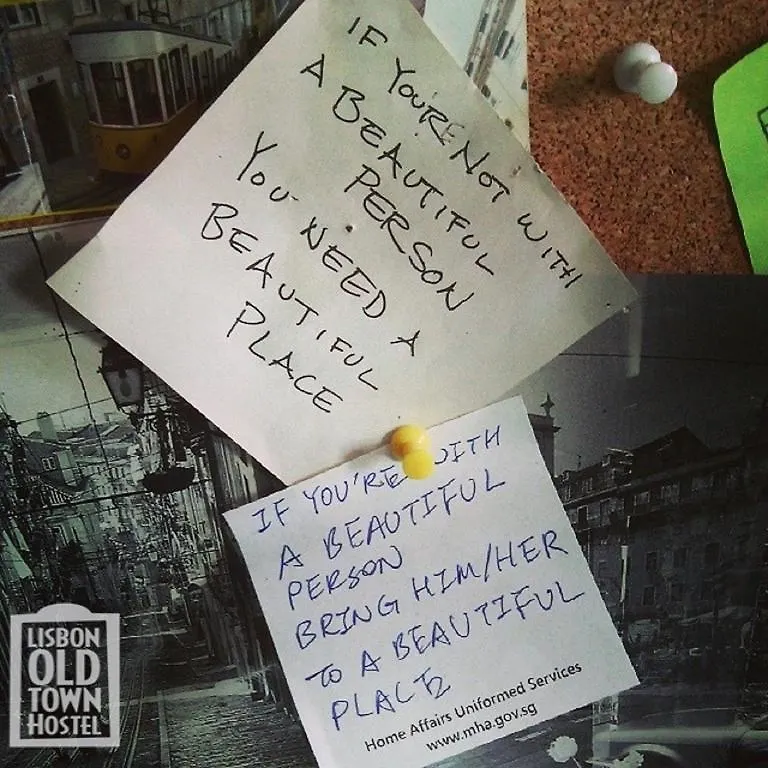 IF YOU'RE NOT WITH
A BEAUTIFUL
PERSON
YOU NEED A
BEAUTIFUL
PLACE
IF YOU'RE WITH
A BEAUTIFUL
PERSON
BRING HIM/HER
TO A BEAUTIFUL
PLACE
Home Affairs Uniformed Services
www.mha.gov.sg
LISBON
OLD
TOWN
HOSTEL